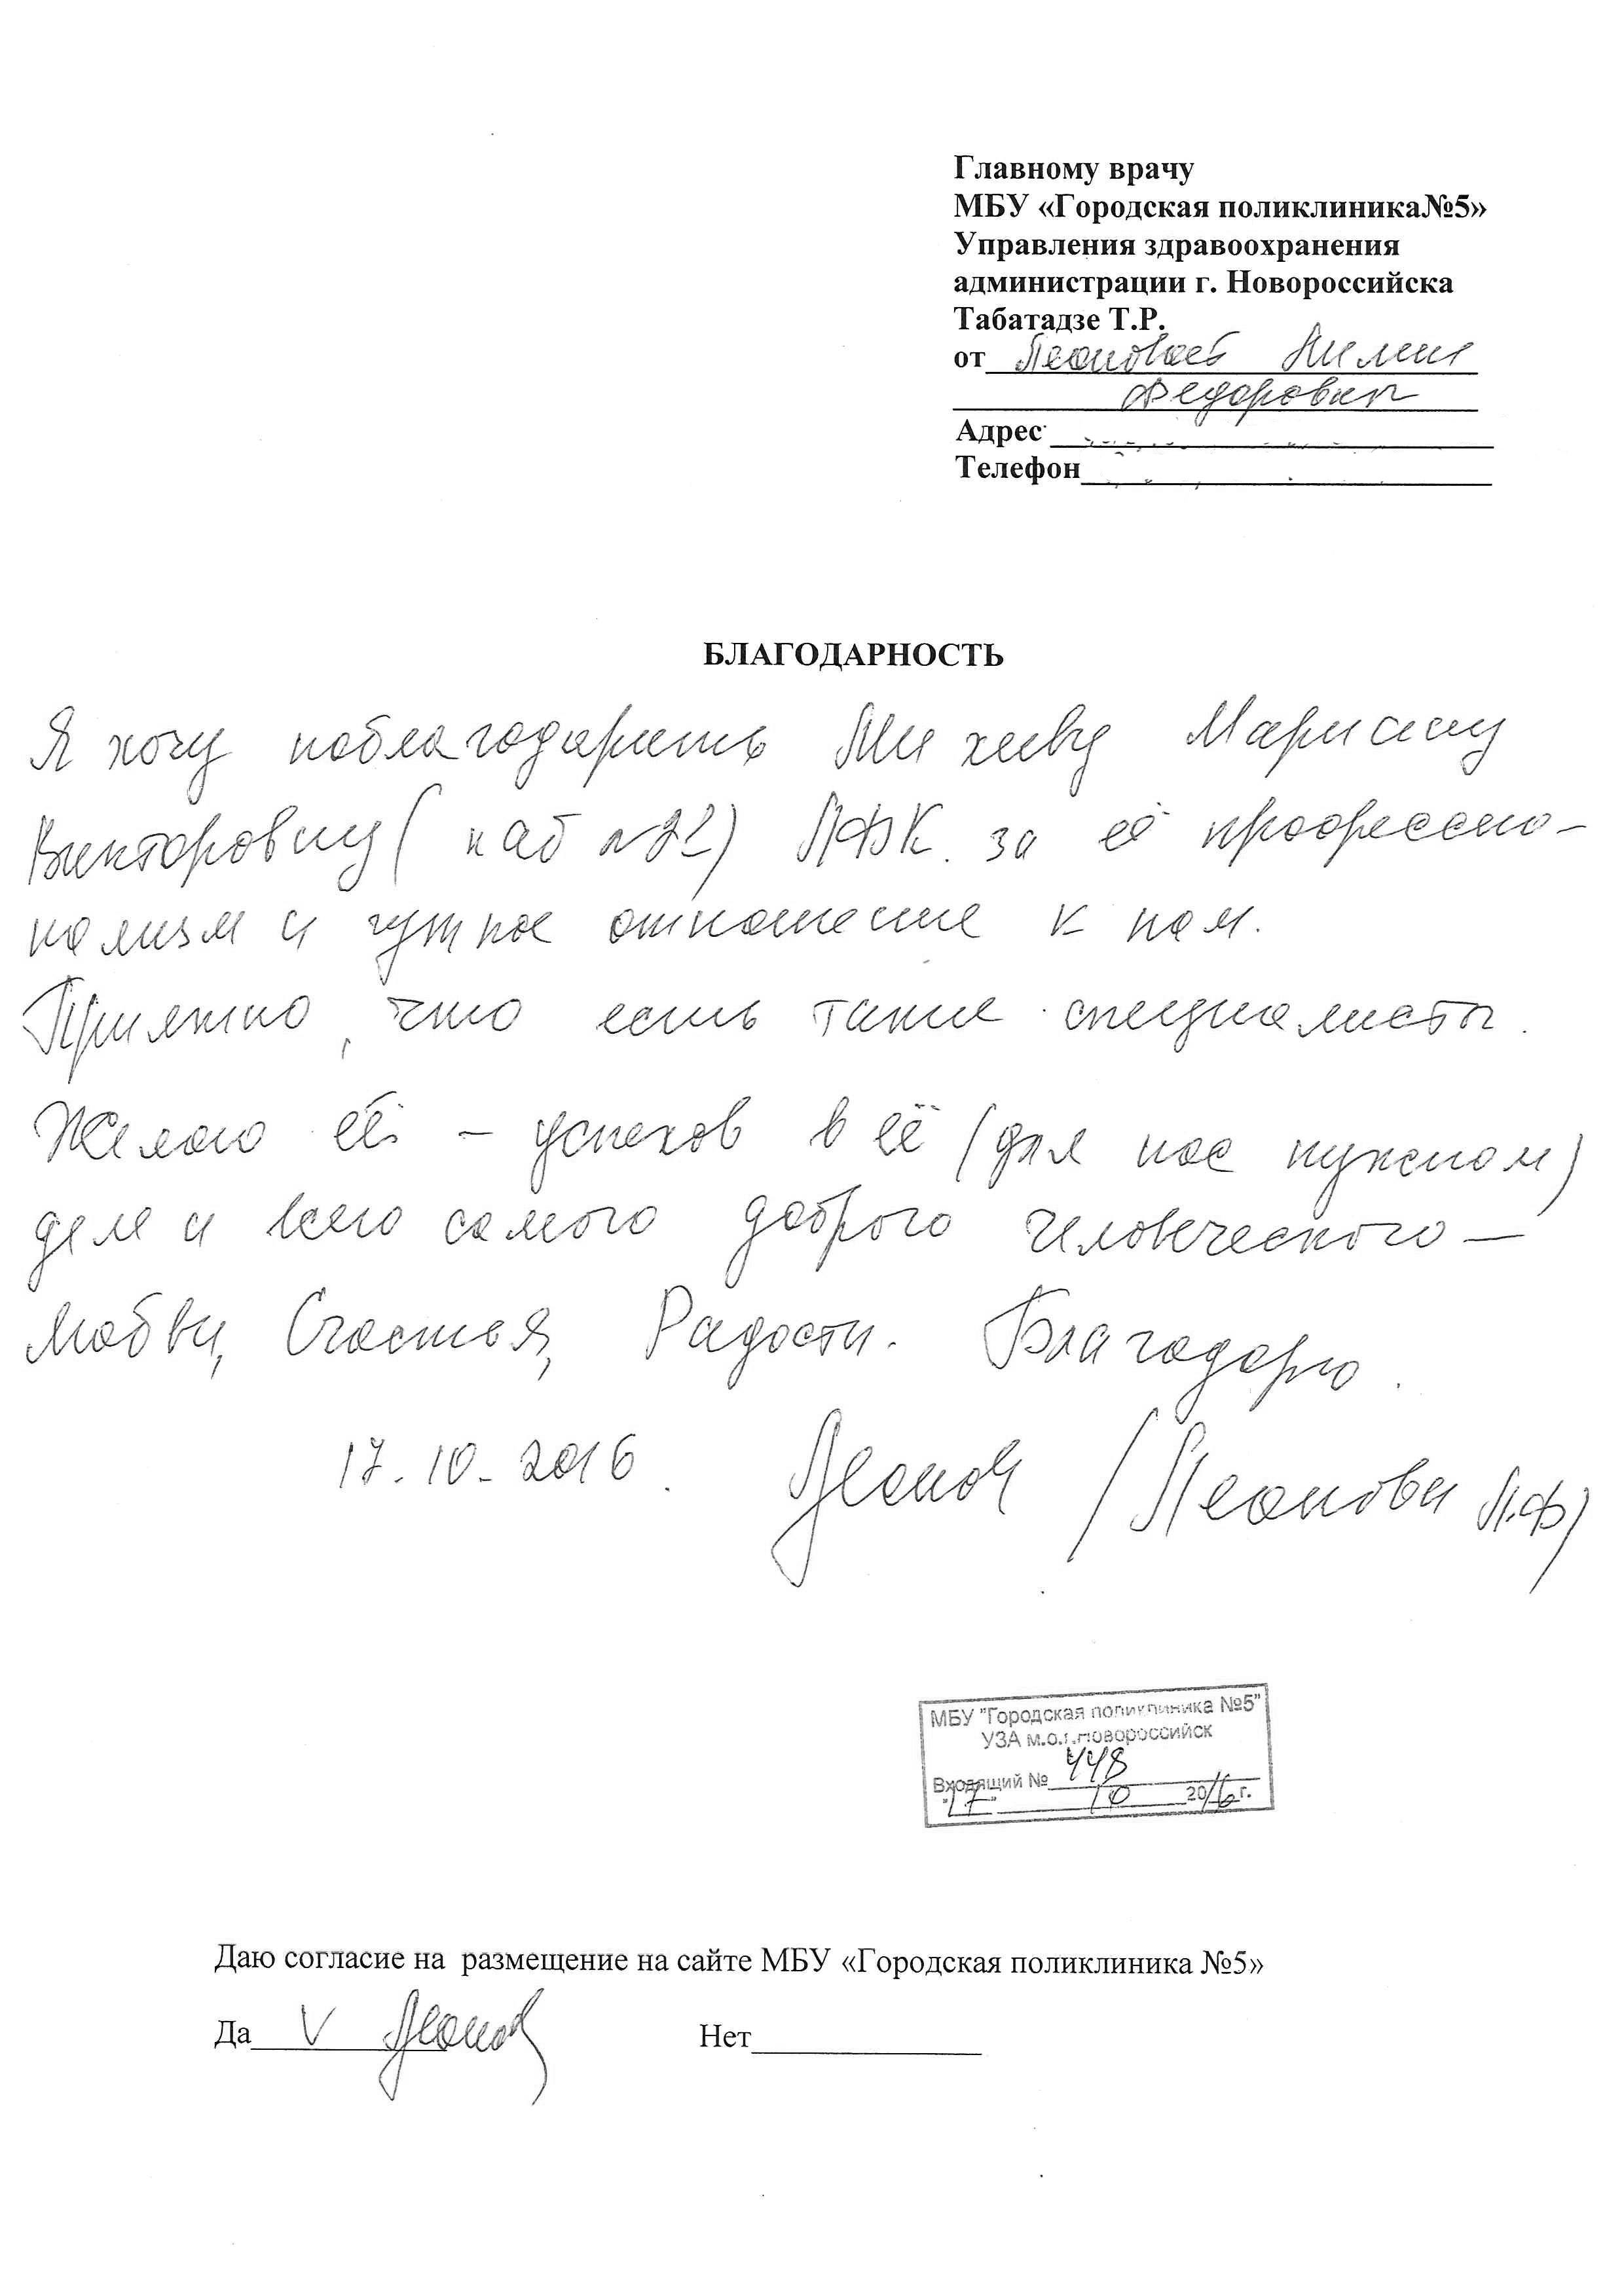 Главному врачу
МБУ «Городская поликлиника№5»
Управления здравоохранения
администрации г. Новороссийска
Табатадзе Т.Р.
от Леоновой Лилии
Федоровны
Адрес
Телефон
БЛАГОДАРНОСТЬ
Я хочу поблагодарить Михееву Марину
Викторовну (каб №22) ЛФК. за её профессио-
нализм и чуткое отношение к нам.
Приятно, что есть такие специалисты.
Желаю ей - успехов в её (для нас нужном)
деле и всего самого доброго человеческого -
Любви, Счастья, Радости. Благодарю.
17.10.2016. Леонов /Леонова Л.Ф/
МБУ "Городская поликлиника №5"
УЗА м.о.г.Новороссийск
Входящий № 448
"17" 10 2016 г.
Даю согласие на размещение на сайте МБУ «Городская поликлиника №5»
Да V Леонов Нет